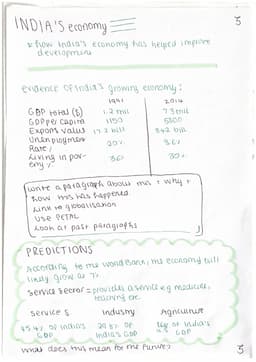 INDIA'S economy
* how India's economy has helped improve development
evidence of India's growing economy:
1991 2014
GDP total ($) 1.2 trill 7.3 trill
GDP per capita 1150 5800
Exports value 17.2 bill 342 bill
Unemployment Rate, 20%
Living in poverty %
write a paragraph about this + why +
how this has happened
Link to globalisation
USE PETAL
Look at past paragraphs
PREDICTIONS
According to the World Bank, the economy will
likely grow at
Service sector = provides a service e.g medicine,
teaching etc.
Services Industry Agriculture
of India's GDP
of India's GDP
of India's GDP
what does this mean for the future?